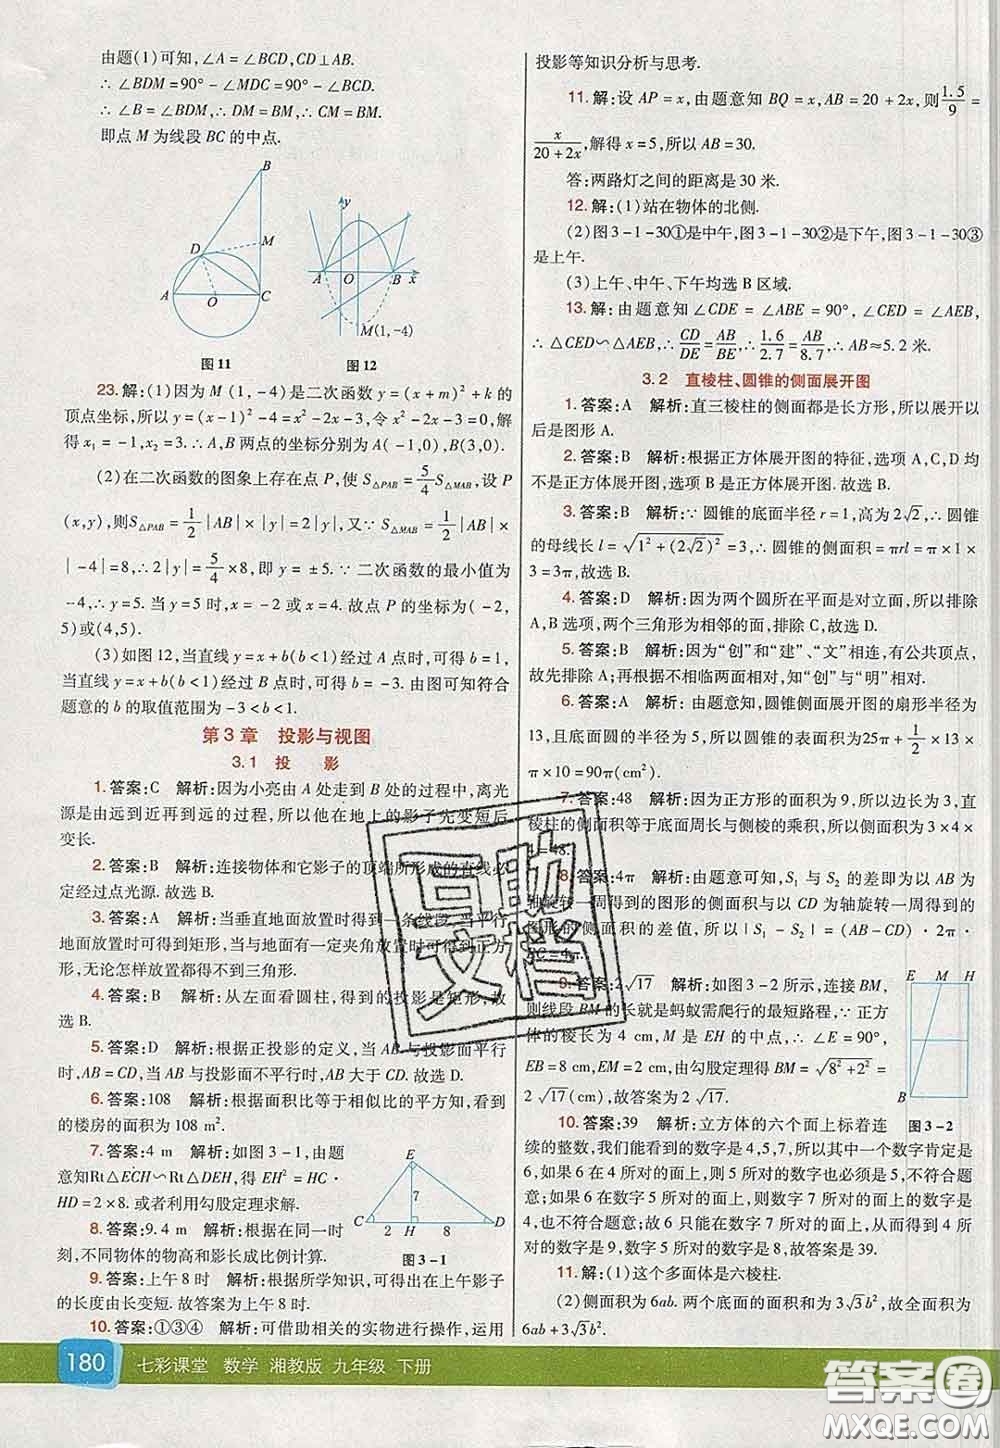 由题(1)可知,∠A=∠BCD,CD⊥AB.
∴∠BDM=90°-∠MDC=90°-∠BCD.
∴∠BDM=∠B,∴DM=BM,∴CM=BM.
即点 M 为线段 BC 的中点.
B
D
M
A
O
C
图 11
y
A
O
B
x
M(1,-4)
图 12
23.解:(1)因为 M (1,-4)是二次函数 y=(x+m)²+k 的
顶点坐标,所以 y=(x-1)²-4=x²-2x-3,令 x²-2x-3=0,解
得 x₁=-1,x₂=3.∴A,B 两点的坐标分别为 A(-1,0),B(3,0).
(2)在二次函数的图象上存在点 P,使 S△PAB=5/4 S△MAB,设 P
(x,y),则S△PAB=1/2|AB|×|y|=2|y|,又∵S△MAB=1/2|AB|×
|-4|=8,∴2|y|=5/4×8,即 y=±5.∵二次函数的最小值为
-4,∴y=5.当 y=5 时,x=-2 或 x=4.故点 P 的坐标为(-2,
5)或(4,5).
(3)如图 12,当直线 y=x+b(b<1)经过 A 点时,可得 b=1,
当直线 y=x+b(b<1)经过 B 点时,可得 b=-3.由图可知符合
题意的 b 的取值范围为-3<b<1.
第 3 章 投影与视图
3.1 投 影
1.答案:C 解析:因为小亮由 A 处走到 B 处的过程中,离光
源是由远到近再到远的过程,所以他在地上的影子先变短后
变长.
2.答案:B 解析:连接物体和它影子的顶端所形成的直线必
定经过点光源.故选 B.
3.答案:A 解析:当垂直地面放置时得到一条线段,当平行
地面放置时可得到矩形,当与地面有一定夹角放置时可得到正方
形,无论怎样放置都得不到三角形.
4.答案:B 解析:从左面看圆柱,得到的投影是矩形,故
选 B.
5.答案:D 解析:根据正投影的定义,当 AB 与投影面平行
时,AB=CD,当 AB 与投影面不平行时,AB 大于 CD.故选 D.
6.答案:108 解析:根据面积比等于相似比的平方知,看到
的楼房的面积为 108 m².
7.答案:4 解析:如图 3-1,由题
意知Rt△ECH∽Rt△DEH,得 EH²=HC·
HD=2×8.或者利用勾股定理求解.
8.答案:9.4 m 解析:根据在同一时
刻,不同物体的物高和影长成比例计算.
E
7
C
2
H
8
D
图 3-1
9.答案:上午 8 时 解析:根据所学知识,可得出在上午影子
的长度由长变短.故答案为上午 8 时.
10.答案:①③④ 解析:可借助相关的实物进行操作,运用
投影等知识分析与思考.
11.解:设 AP=x,由题意知 BQ=x,AB=20+2x,则1.5/9=
x/(20+2x),解得 x=5,所以 AB=30.
答:两路灯之间的距离是 30 米.
12.解:(1)站在物体的北侧.
(2)图 3-1-30①是中午,图 3-1-30②是下午,图 3-1-30③
是上午.
(3)上午、中午、下午均选 B 区域.
13.解:由题意知∠CDE=∠ABE=90°,∠CED=∠AEB,
∴△CED∽△AEB,∴CD/DE=AB/BE,∴1.6/2.7=AB/8.7,∴AB≈5.2 米.
3.2 直棱柱、圆锥的侧面展开图
1.答案:A 解析:直三棱柱的侧面都是长方形,所以展开以
后是图形 A.
2.答案:B 解析:根据正方体展开图的特征,选项 A,C,D 均
不是正方体展开图,选项 B 是正方体展开图.故选 B.
3.答案:B 解析:∵圆锥的底面半径 r=1,高为 2√2,∴圆锥
的母线长 l=√(1²+(2√2)²)=3,∴圆锥的侧面积=πrl=π×1×
3=3π,故选 B.
4.答案:D 解析:因为两个圆所在平面是对立面,所以排除
A,B 选项,两个三角形为相邻的面,排除 C,故选 D.
5.答案:B 解析:因为“创”和“建”、“文”相连,有公共顶点,
故先排除 A;再根据不相临两面中间隔一面,知“创”与“明”相对.
6.答案:A 解析:由题意知,圆锥侧面展开图的扇形半径为
13,且底面圆的半径为 5,所以圆锥的表面积为25π+1/2×13×
π×10=90π(cm²).
7.答案:48 解析:因为正方形的面积为 9,所以边长为 3,直
棱柱的侧面积等于底面周长与侧棱的乘积,所以面积为 3×4×
4=48.
8.答案:4π 解析:由题意可知,S₁ 与 S₂ 的差即为以 AB 为
轴旋转一周得到的图形的侧面积与以 CD 为轴旋转一周得到的
图形的侧面积的差值,所以|S₁-S₂|=(AB-CD)·2π·
BC=4π.
9.答案:2√17 解析:如图 3-2 所示,连接 BM,
则线段 BM 的长就是蚂蚁需爬行的最短路程,∵正方
体的棱长为 4 cm,M 是 EH 的中点,∴∠E=90°,
EB=8 cm,EM=2 cm,由勾股定理得 BM=√(8²+2²)=
2√17(cm),故答案为 2√17.
E M H
B
图 3-2
10.答案:39 解析:立方体的六个面上标着连
续的整数,我们能看到的数字是 4,5,7,所以其中一个数字肯定是
6,如果 6 在 4 所对的面上,则 5 所对的数字也必须是 5,不符合题
意;如果 6 在数字 5 所对的面上,则数字 7 所对的面上的数字是
4,也不符合题意;故 6 只能在数字 7 所对的面上,从而得到 4 所
对的数字是 9,数字 5 所对的数字是 8,故答案是 39.
11.解:(1)这个多面体是六棱柱.
(2)侧面积为 6ab.两个底面的面积和为 3√3b²,故全面积为
6ab+3√3b².
180 七彩课堂 数学 湘教版 九年级 下册
互助
文档
答案圈
MXQE.COM